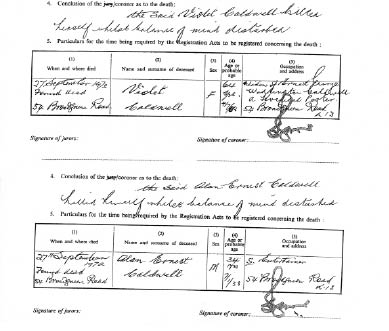 4. Conclusion of the jury/coroner as to the death:
the said Violet Caldwell killed
herself whilst balance of mind disturbed
5. Particulars for the time being required by the Registration Acts to be registered concerning the death:
(1) (2) (3) (4) (5)
When and where died Name and surname of deceased Sex Age or probable age Occupation and address
27 September 1972 Violet F Widow of Ernest
Found dead Caldwell Washington Caldwell
54 Broadgreen Road a Porter
54 Broadgreen Road
L.13
Signature of jurors: Signature of coroner:
4. Conclusion of the jury/coroner as to the death:
the said Alan Ernest Caldwell
killed himself whilst balance of mind disturbed
5. Particulars for the time being required by the Registration Acts to be registered concerning the death:
(1) (2) (3) (4) (5)
When and where died Name and surname of deceased Sex Age or probable age Occupation and address
27th September 1972 Alan Ernest M 34 Entertainer
Found dead Caldwell 54 Broadgreen Road
54 Broadgreen Road L.13
Signature of jurors: Signature of coroner: